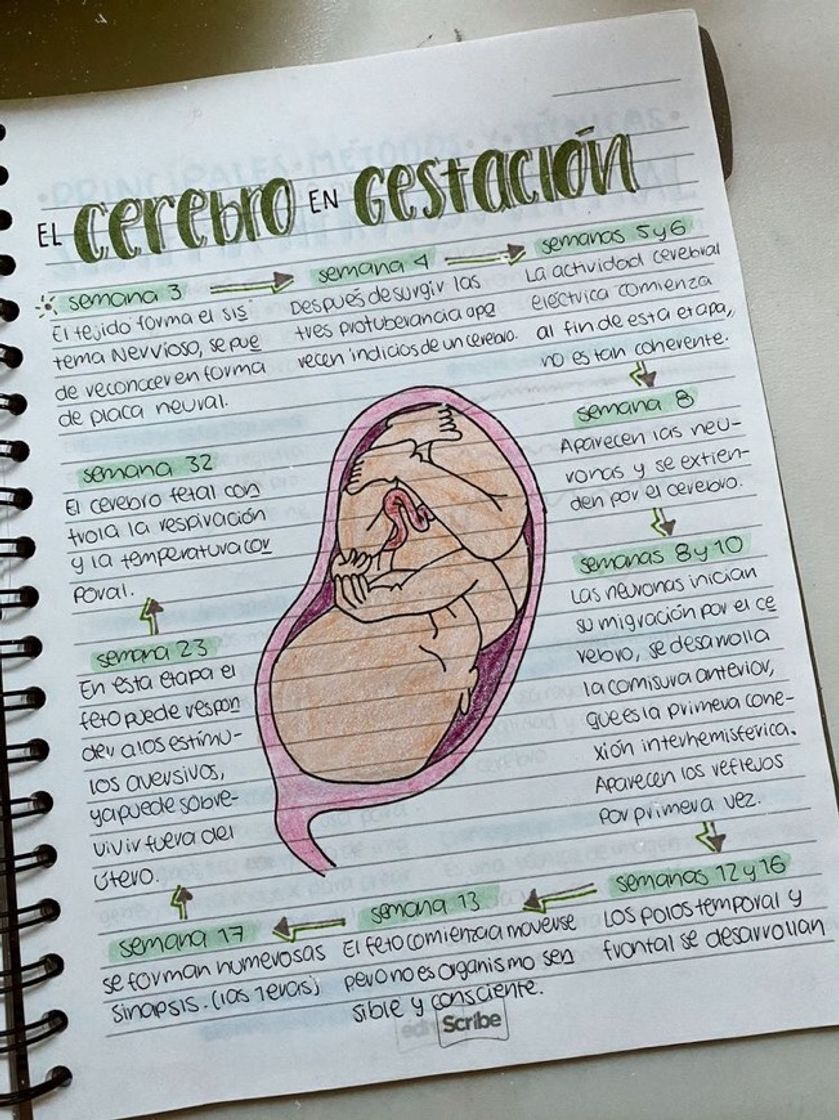 EL CEREBRO EN GESTACIÓN
semana 3
El tejido forma el sis
tema Nervioso, se pue
de reconocer en forma
de placa neural.
semana 4
Después de surgir las
tres protuberancia apa
recen indicios de un cerebro.
semanas 5 y 6
La actividad cerebral
eléctrica comienza
al fin de esta etapa,
no es tan coherente.
semana 8
Aparecen las neu-
ronas y se extien-
den por el cerebro.
semanas 8 y 10
Las neuronas inician
su migración por el ce
rebro, se desarrolla
la comisura anterior,
que es la primera cone-
xión interhemisférica.
Aparecen los reflejos
por primera vez.
semanas 12 y 16
Los polos temporal y
frontal se desarrollan
semana 13
El feto comienza a moverse
pero no es organismo sen
sible y consciente.
semana 17
se forman numerosas
sinapsis. (las 1eras)
semana 23
En esta etapa el
feto puede respon
der a los estímu-
los aversivos,
ya puede sobre-
vivir fuera del
útero.
semana 32
El cerebro fetal con
trola la respiración
y la temperatura cor
poral.
Scribe